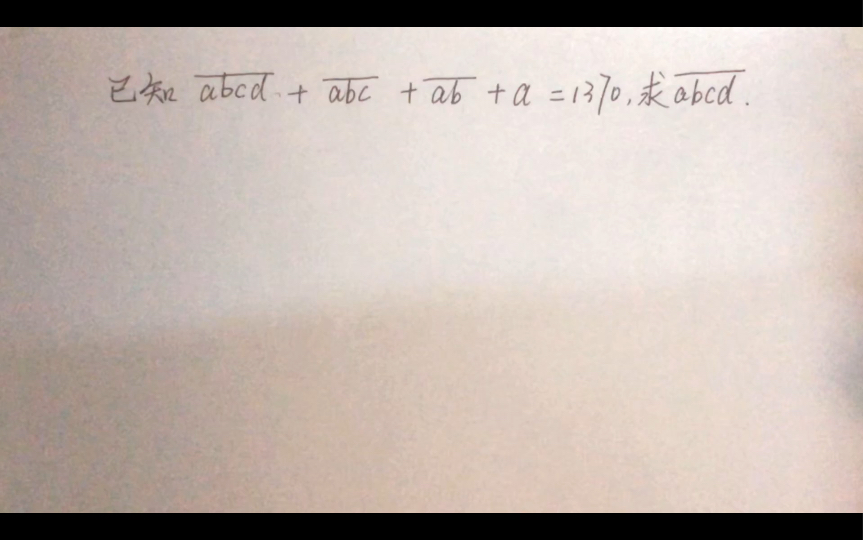 已知 abcd + abc + ab + a = 1370, 求 abcd.